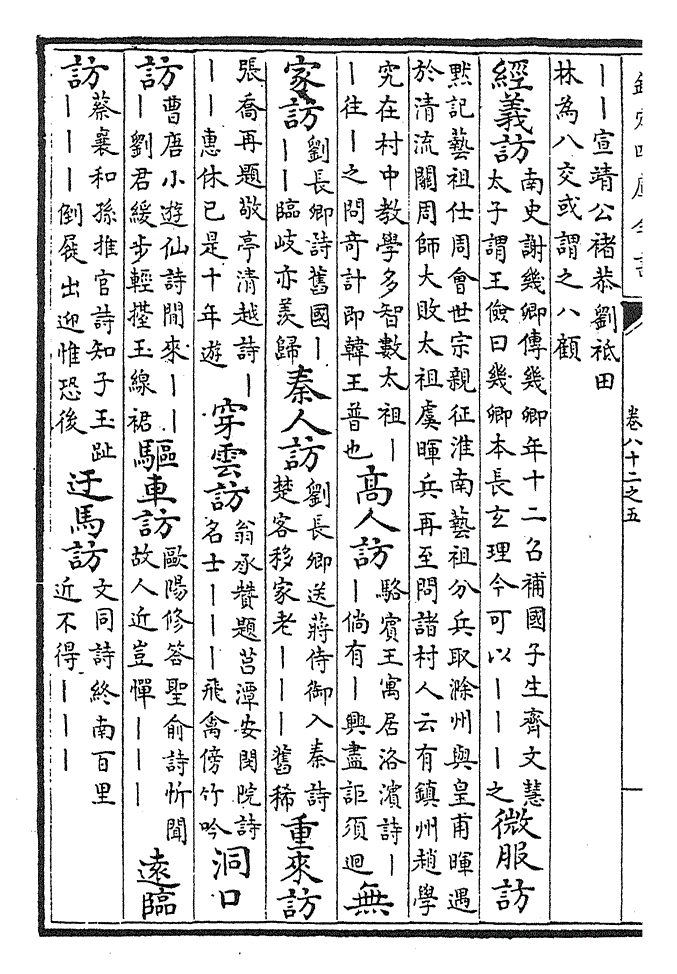 欽定四庫全書
卷八十二之五
丨丨宣靖公褚恭劉祗田
林為八交或謂之八顧
經義訪
南史謝幾卿傳幾卿年十二召補國子生齊文慧
太子謂王儉曰幾卿本長玄理今可以丨丨丨之
微服訪
默記藝祖仕周會世宗親征淮南藝祖分兵取滁州與皇甫暉遇
於清流關周師大敗太祖虞暉兵再至問諸村人云有鎮州趙學
究在村中教學多智數太祖丨
丨往丨之問奇計即韓王普也
高人訪
駱賓王寓居洛濱詩丨
丨倘有丨興盡詎須迴
無
家訪
劉長卿詩舊國丨
丨丨臨岐亦羨歸
秦人訪
劉長卿送蔣侍御入秦詩
楚客移家老丨丨丨舊稀
重來訪
張喬再題敬亭清越詩丨
丨丨惠休已是十年遊
穿雲訪
翁承贊題莒潭安閩院詩
名士丨丨丨飛禽傍竹吟
洞口
訪
曹唐小遊仙詩閒來丨丨
丨劉君緩步輕擡玉線裙
驅車訪
歐陽修答聖俞詩忻聞
故人近豈憚丨丨丨
遠臨
訪
蔡襄和孫推官詩知子玉趾
丨丨丨倒屣出迎惟恐後
迂馬訪
文同詩終南百里
近不得丨丨丨